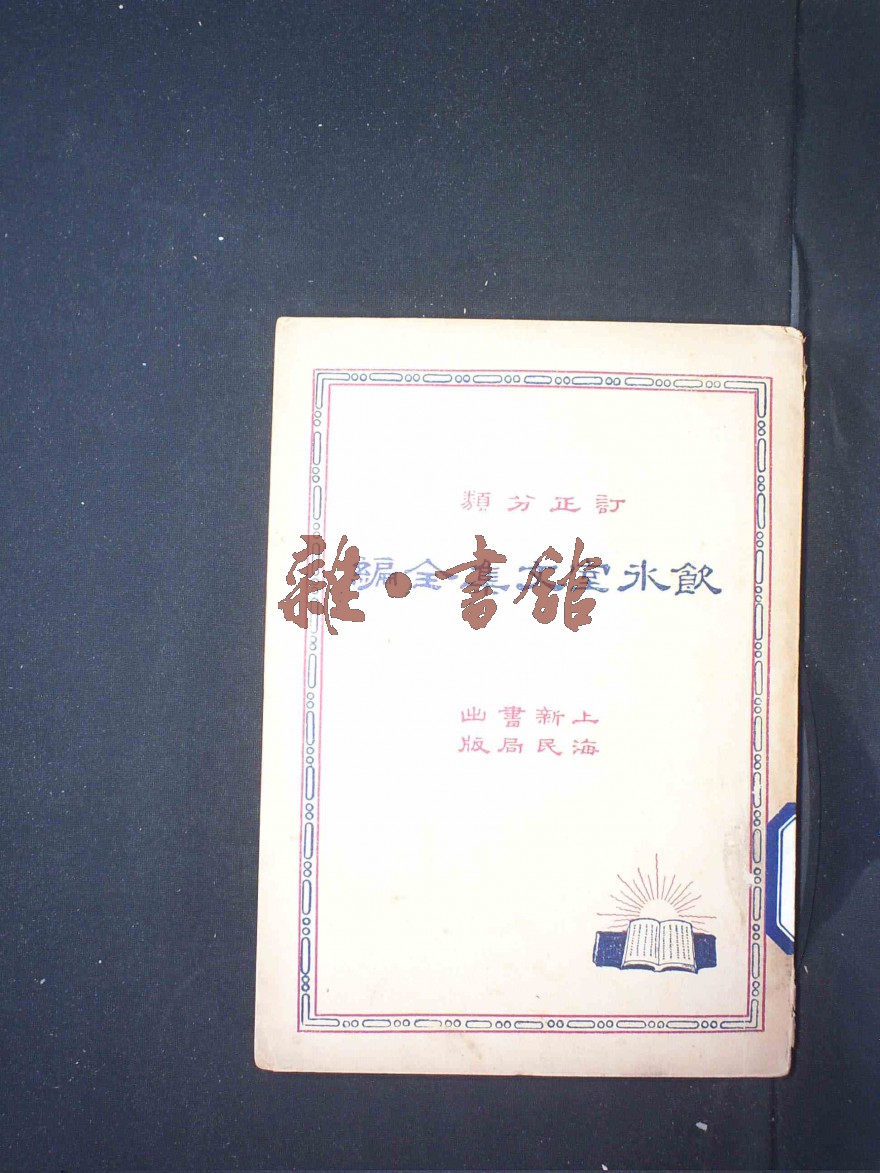 訂正分類
飲氷室文集全編
上海新民書局出版
雜·書舘